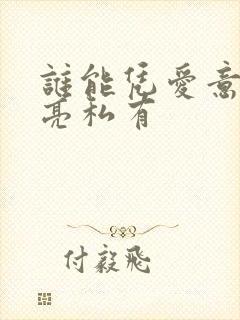 誰能凭愛意
亮私有
付毅飛